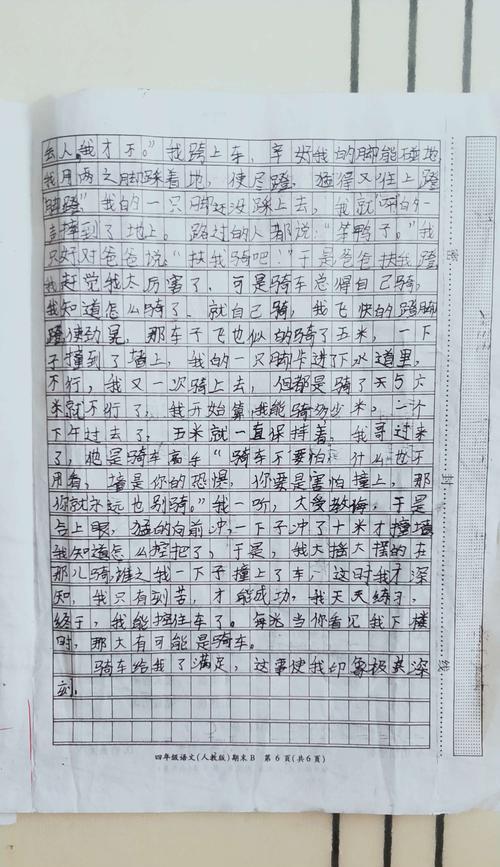 去人,我才不。”我跨上车,幸好我的脚能碰地
我用两之脚踩着地,使尽蹬,猛得又往上蹬
“蹬”我的一只脚还没踩上去,我就啊的一
声摔到了地上。路过的人都说:“笨鸭子。”我
只好对爸爸说“扶我骑吧!”于是爸爸扶我蹬
我赶觉我太厉害了,可是骑车总得自己骑,
我知道怎么骑了,就自己骑,我飞快的蹬脚
蹬使劲晃,那车子飞也似的骑了五米,一下
子撞到了墙上,我的一只脚卡进了下水道里,
不行,我又一次骑上去,但都是骑了天5六
米就不行了,我开始算我能骑多少米,一个
下午过去了,五米就一直保持着,我哥过来
了,他是骑车高手“骑车不要怕,什么也不
用看,墙是你的恐惧,你要是害怕撞上,那
你就永远也别骑。”我一听,大受教悔,于是
合上眼,猛的向前冲,一下子冲了十米才撞墙
我知道怎么控把了,于是,我大摇大摆的在
那儿骑,谁之我一下子撞上了车,这时我才深
知,我只有刻苦,才能成功,我天天练习,
终于,我能控住车了。每当你看见我下楼
时,那大有可能是骑车。
骑车给我了满足,这事使我印象极其深
刻.
四年级语文(人教版)期末B 第6页(共6页)
密
封
线